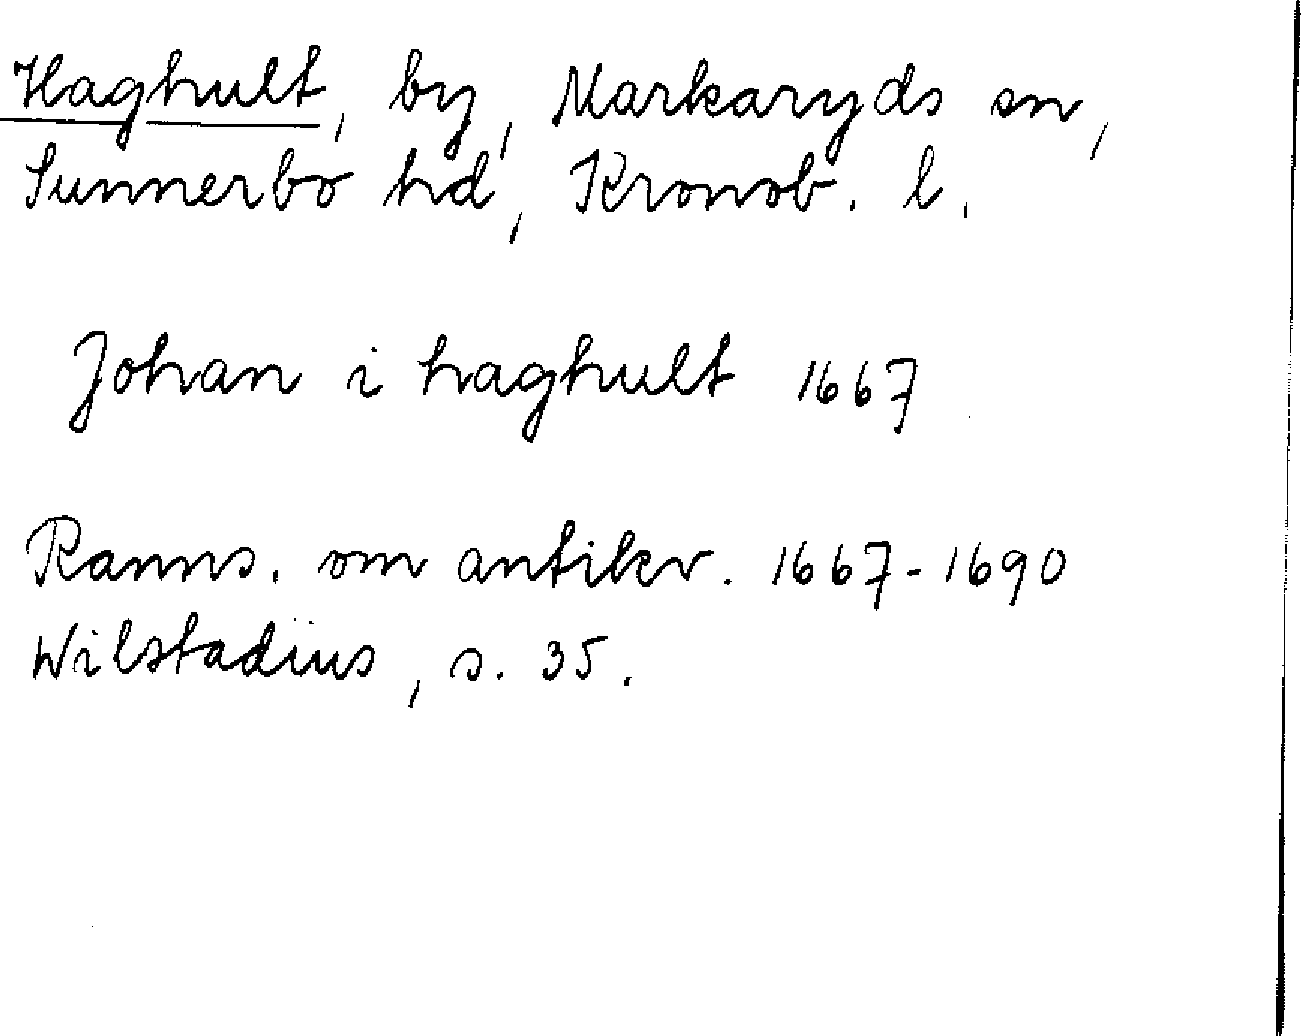 Haghult, by, Markaryds sn,
Sunnerbo hd, Kronob. l.
Johan i haghult 1667
Ranns. om antikv. 1667-1690
Wilstadius, s. 35.